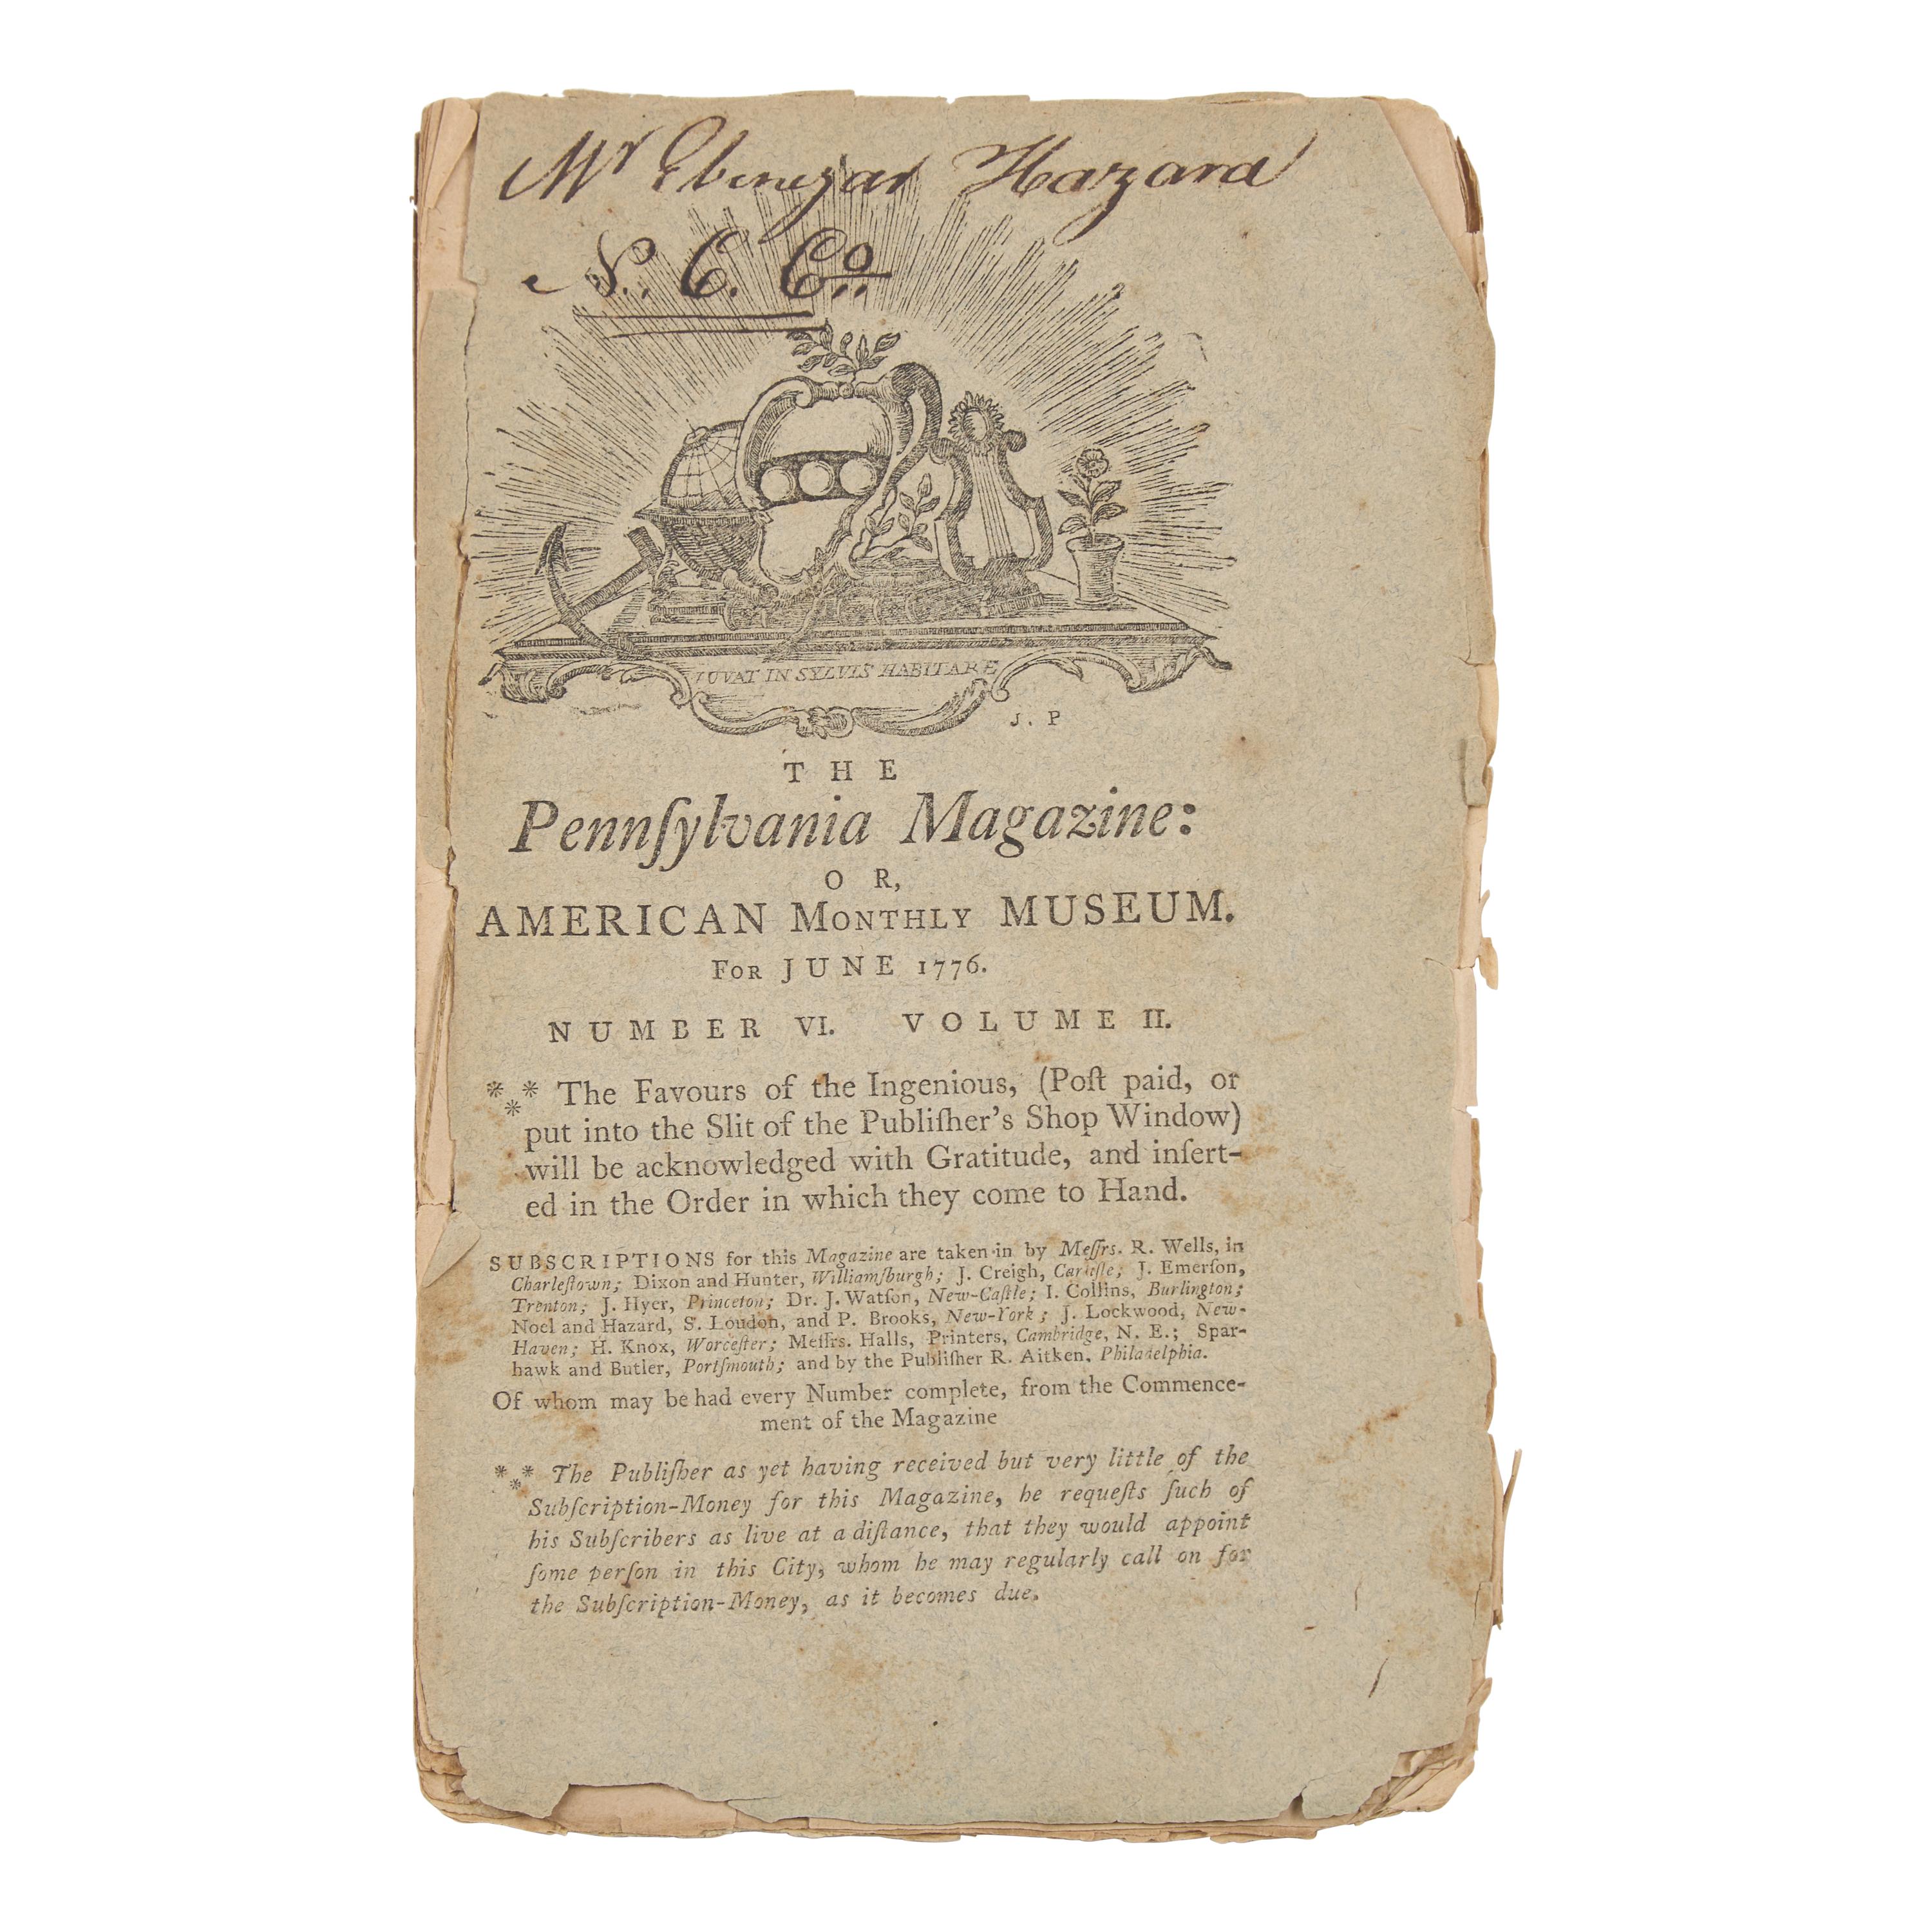 Mr Ebenezar Hazard
N. C. Co.
JUVAT IN SYLVIS HABITARE
J. P
THE
Pennſylvania Magazine:
OR,
AMERICAN MONTHLY MUSEUM.
FOR JUNE 1776.
NUMBER VI. VOLUME II.
*** The Favours of the Ingenious, (Poſt paid, or
put into the Slit of the Publiſher's Shop Window)
will be acknowledged with Gratitude, and inſert-
ed in the Order in which they come to Hand.
SUBSCRIPTIONS for this Magazine are taken in by Meſſrs. R. Wells, in
Charleſtown; Dixon and Hunter, Williamſburgh; J. Creigh, Carliſle; J. Emerſon,
Trenton; J. Hyer, Princeton; Dr. J. Watſon, New-Caſtle; I. Collins, Burlington;
Noel and Hazard, S. Loudon, and P. Brooks, New-York; J. Lockwood, New-
Haven; H. Knox, Worceſter; Meſſrs. Halls, Printers, Cambridge, N. E.; Spar-
hawk and Butler, Portſmouth; and by the Publiſher R. Aitken, Philadelphia.
Of whom may be had every Number complete, from the Commence-
ment of the Magazine
*** The Publiſher as yet having received but very little of the
Subſcription-Money for this Magazine, he requeſts ſuch of
his Subſcribers as live at a diſtance, that they would appoint
ſome perſon in this City, whom he may regularly call on for
the Subſcription-Money, as it becomes due.